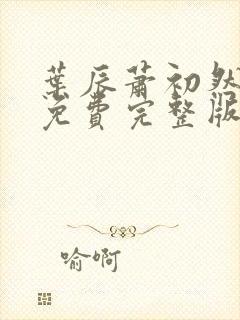 葉辰蕭初然
免費完整版
喻啊